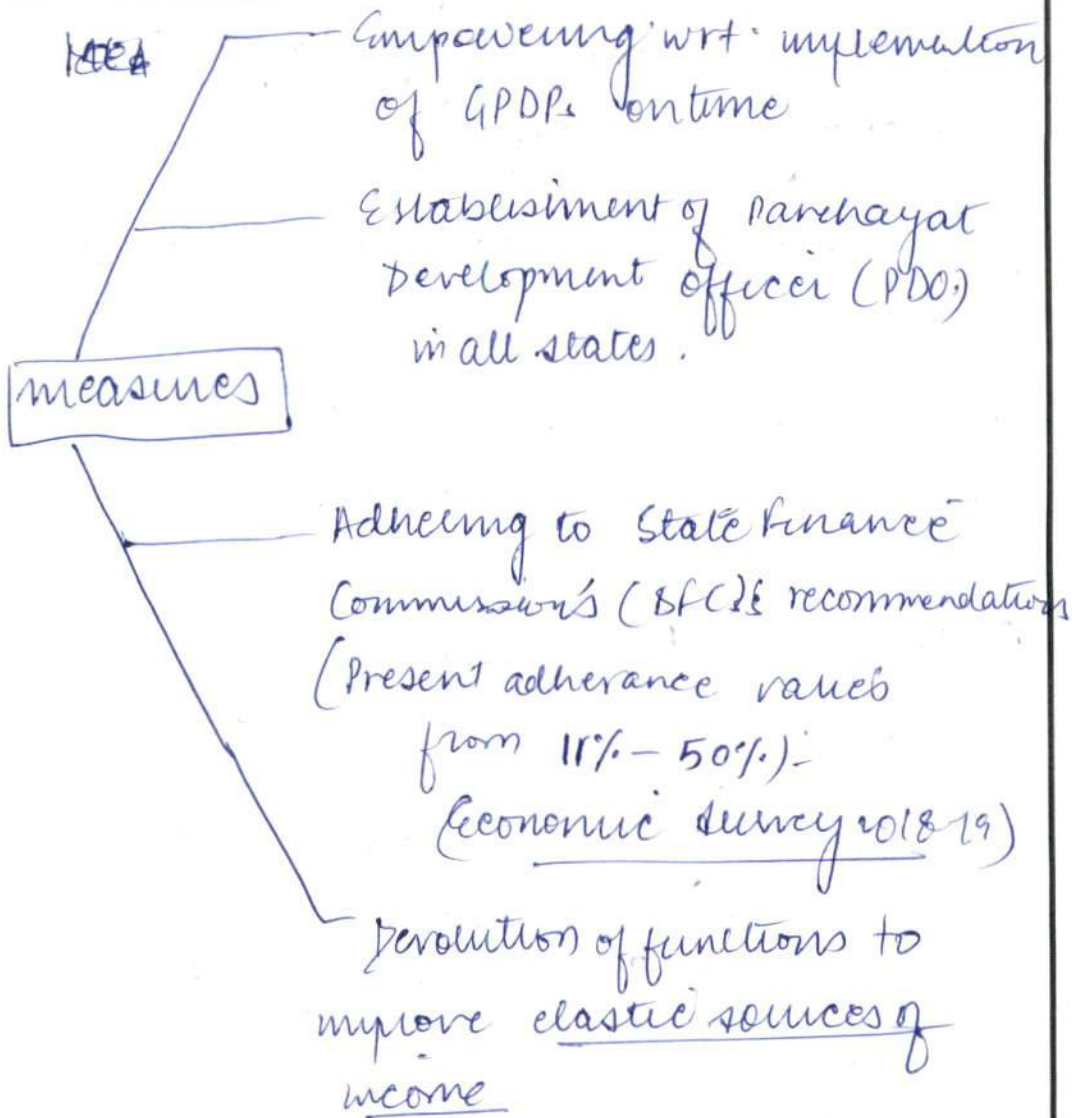 Empowering wrt. implementation
of GPDPs on time
Establishment of Panchayat
Development Officer (PDO)
in all states.
measures
Adhering to State Finance
Commission's (SFC)'s recommendations
(Present adherance varies
from 11% - 50%) -
(Economic Survey 2018-19)
Devolution of functions to
improve elastic sources of
income